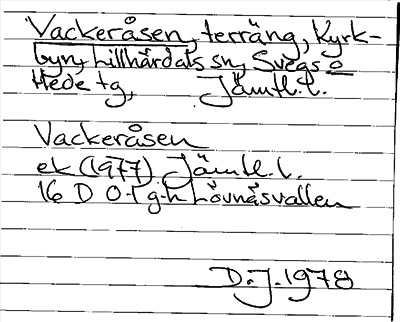 Vackeråsen, terräng, Kyrk-
byn, Lillhärdals sn, Svegs o
Hede tg, Jämtl. l.
Vackeråsen
ek (1977) Jämtl. l.
16 D 0-1 g-h Lövnäsvallen
D. J. 1978